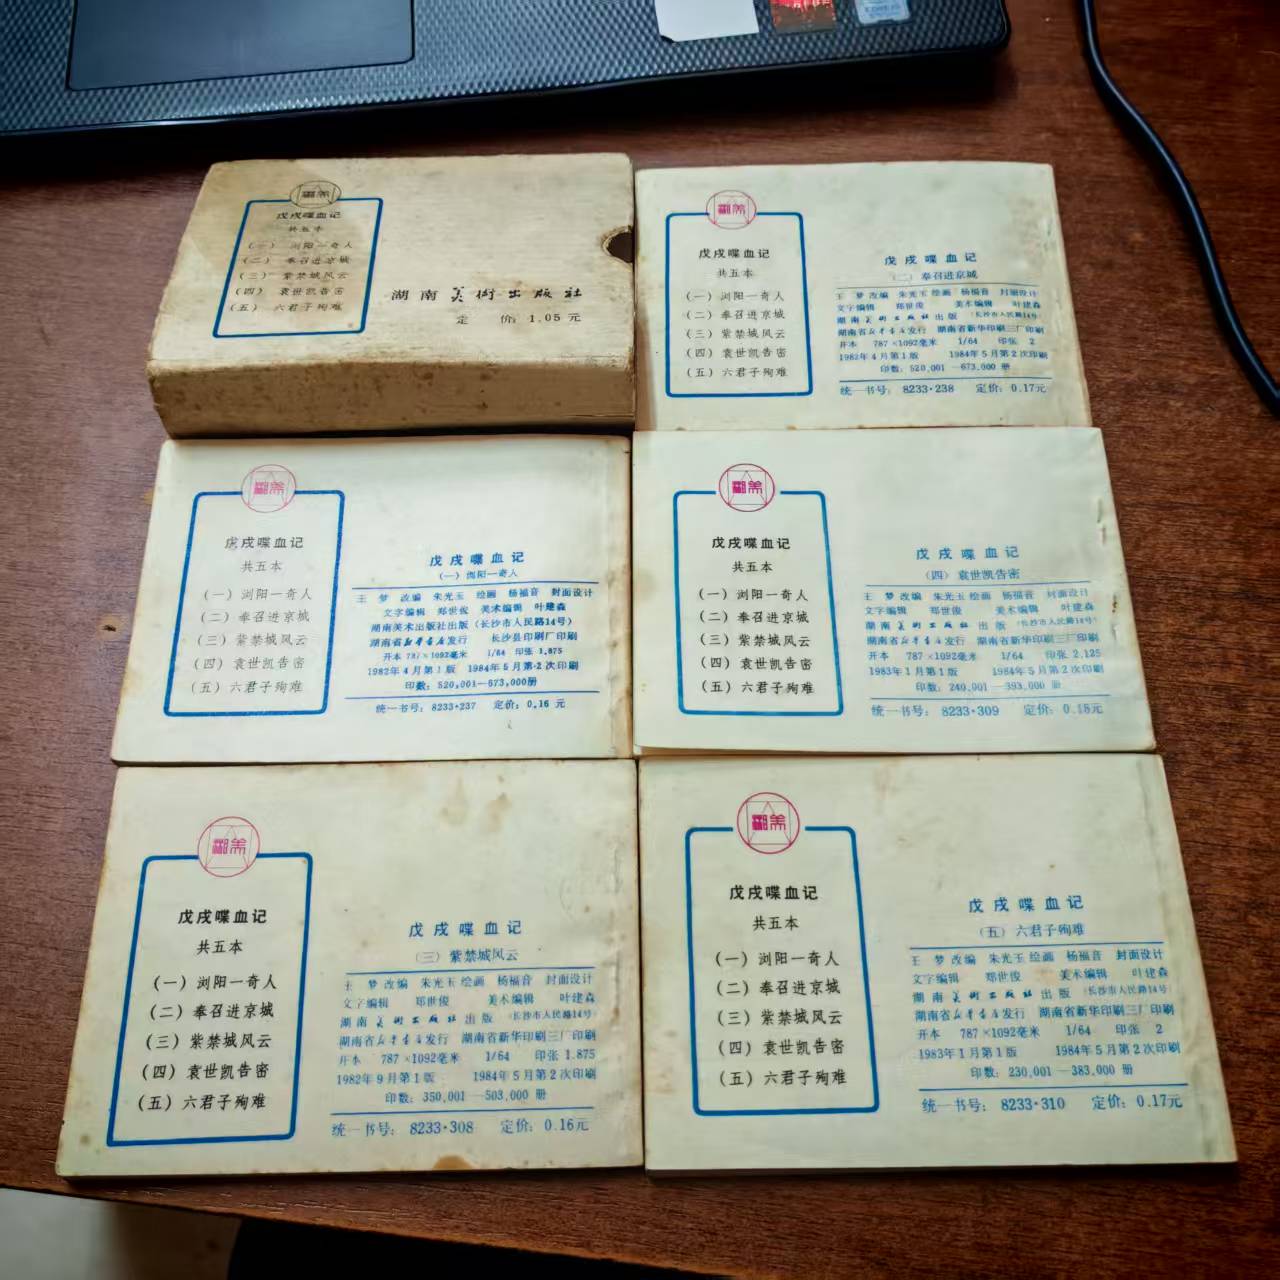 湘美
戊戌喋血记
共五本
(一) 浏阳一奇人
(二) 奉召进京城
(三) 紫禁城风云
(四) 袁世凯告密
(五) 六君子殉难
湖南美術出版社
定 价: 1.05 元
湘美
戊戌喋血记
共五本
(一) 浏阳一奇人
(二) 奉召进京城
(三) 紫禁城风云
(四) 袁世凯告密
(五) 六君子殉难
戊戌喋血记
(二) 奉召进京城
王 梦 改编 朱光玉 绘画 杨福音 封面设计
文字编辑 郑世俊 美术编辑 叶建森
湖南美術出版社出版 (长沙市人民路14号)
湖南省新华书店发行 湖南省新华印刷三厂印刷
开本 787×1092毫米 1/64 印张 2
1982年4月第1版 1984年5月第2次印刷
印数: 520,001—673,000 册
统一书号: 8233·238 定价: 0.17元
湘美
戊戌喋血记
共五本
(一) 浏阳一奇人
(二) 奉召进京城
(三) 紫禁城风云
(四) 袁世凯告密
(五) 六君子殉难
戊戌喋血记
(一) 浏阳一奇人
王 梦 改编 朱光玉 绘画 杨福音 封面设计
文字编辑 郑世俊 美术编辑 叶建森
湖南美术出版社出版 (长沙市人民路14号)
湖南省新华书店发行 长沙县印刷厂印刷
开本 787×1092毫米 1/64 印张 1.875
1982年4月第1版 1984年5月第2次印刷
印数: 520,001—673,000册
统一书号: 8233·237 定价: 0.16 元
湘美
戊戌喋血记
共五本
(一) 浏阳一奇人
(二) 奉召进京城
(三) 紫禁城风云
(四) 袁世凯告密
(五) 六君子殉难
戊戌喋血记
(四) 袁世凯告密
王 梦 改编 朱光玉 绘画 杨福音 封面设计
文字编辑 郑世俊 美术编辑 叶建森
湖南美術出版社出版 (长沙市人民路14号)
湖南省新华书店发行 湖南省新华印刷三厂印刷
开本 787×1092毫米 1/64 印张 2.125
1983年1月第1版 1984年5月第2次印刷
印数: 240,001—393,000 册
统一书号: 8233·309 定价: 0.18元
湘美
戊戌喋血记
共五本
(一) 浏阳一奇人
(二) 奉召进京城
(三) 紫禁城风云
(四) 袁世凯告密
(五) 六君子殉难
戊戌喋血记
(三) 紫禁城风云
王 梦 改编 朱光玉 绘画 杨福音 封面设计
文字编辑 郑世俊 美术编辑 叶建森
湖南美術出版社出版 (长沙市人民路14号)
湖南省新华书店发行 湖南省新华印刷三厂印刷
开本 787×1092毫米 1/64 印张 1.875
1982年9月第1版 1984年5月第2次印刷
印数: 350,001—503,000 册
统一书号: 8233·308 定价: 0.16元
湘美
戊戌喋血记
共五本
(一) 浏阳一奇人
(二) 奉召进京城
(三) 紫禁城风云
(四) 袁世凯告密
(五) 六君子殉难
戊戌喋血记
(五) 六君子殉难
王 梦 改编 朱光玉 绘画 杨福音 封面设计
文字编辑 郑世俊 美术编辑 叶建森
湖南美術出版社出版 (长沙市人民路14号)
湖南省新华书店发行 湖南省新华印刷三厂印刷
开本 787×1092毫米 1/64 印张 2
1983年1月第1版 1984年5月第2次印刷
印数: 230,001—383,000 册
统一书号: 8233·310 定价: 0.17元